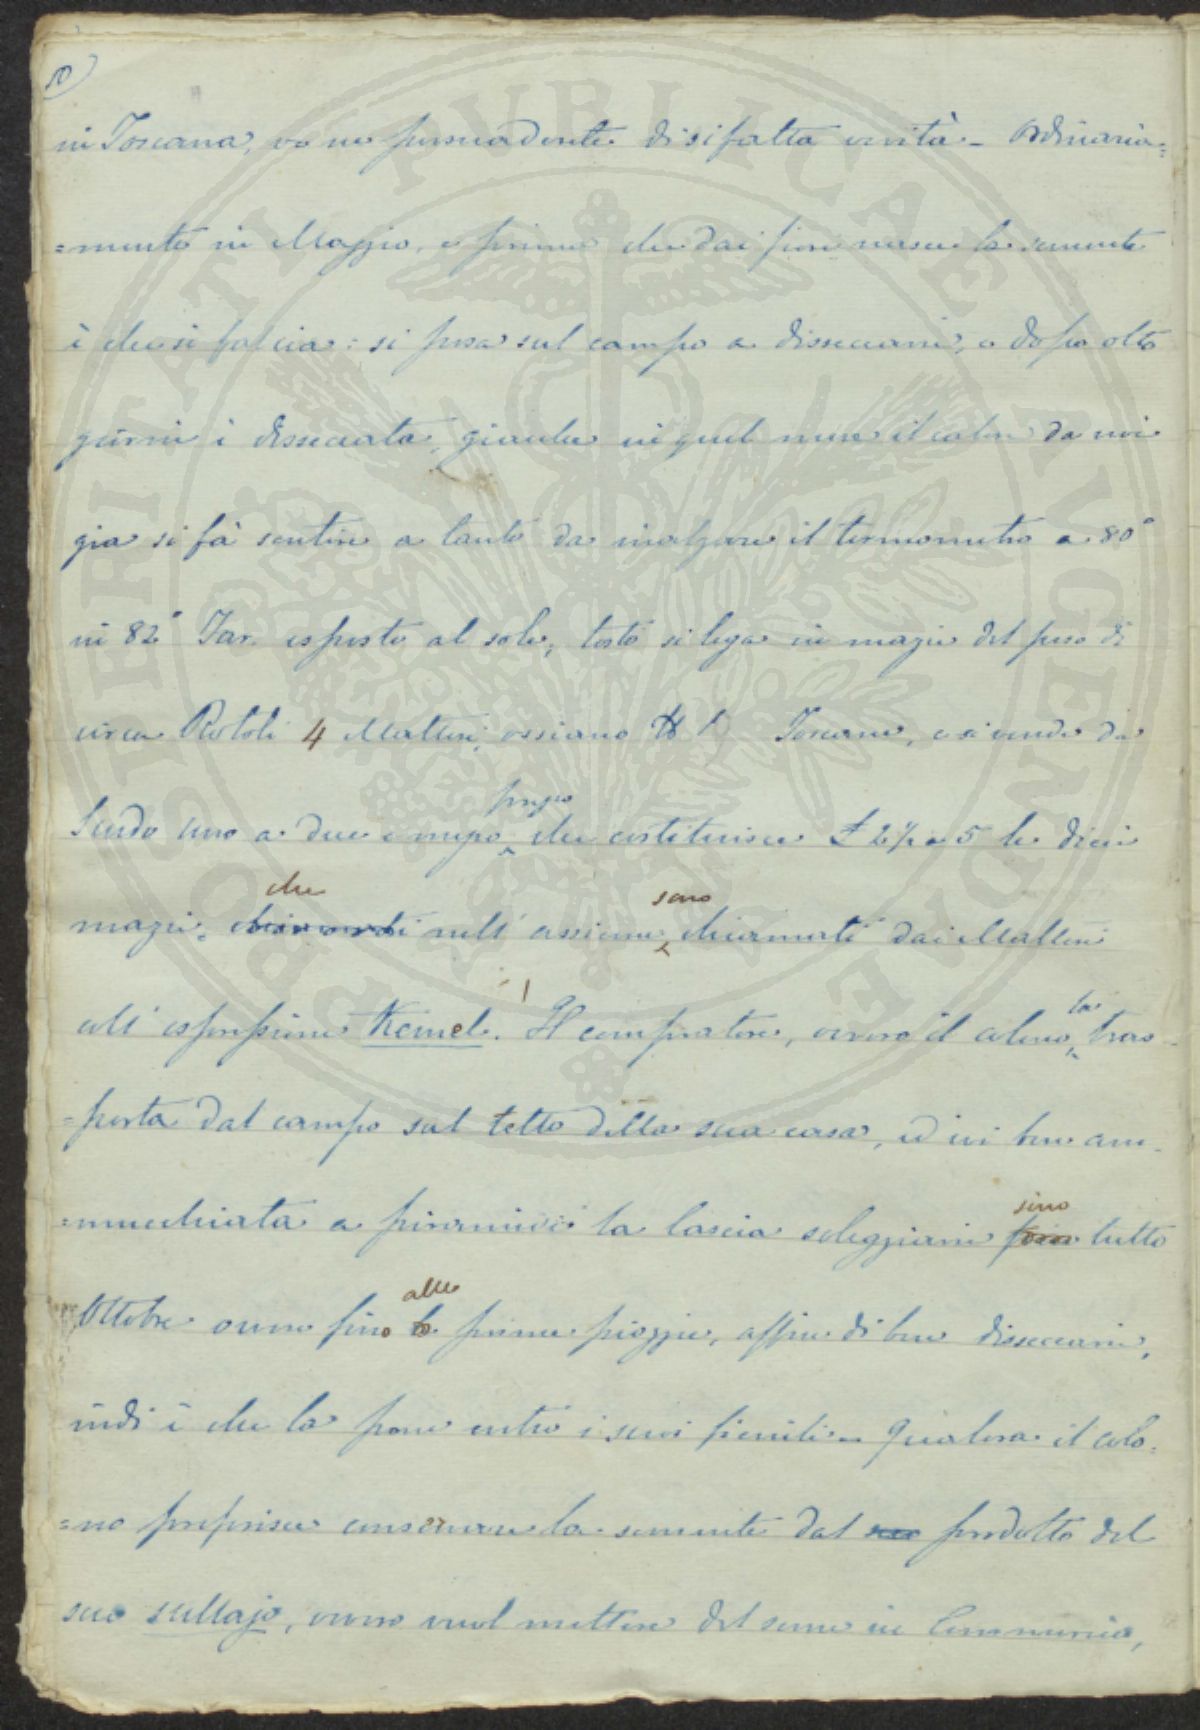 10)
in Toscana, va ne persuadente di sifatta verità - Ordinaria=
=mente in Maggio, e prima che dai fiori nasce la semente
è che si falcia: si posa sul campo a disseccarsi, e dopo otto
giorni è disseccata, giacche in quel mese il calor da noi
gia si fà sentire a tanto da inalzare il termometro a 80°
in 82° Far. esposto al sole, tosto si lega in mazzi del peso di
circa Rotoli 4 Maltesi, ossiano ℔ Toscane, e si vende da
Scudo uno a due e mezzo prezzo che costituisce £ 2½ a 5 le dieci
mazzi, che nell' assieme sono chiamati dai Maltesi
coll' espressione Kemel. Il compratore, ovvero il colono la tras-
=porta dal campo sul tetto della sua casa, ed ivi bene am-
=mucchiata a piramidi la lascia soleggiare sino tutto
Ottobre ovvero fino alle prime pioggie, affine di bene disseccarsi,
indi è che la pone entro i suoi fienili - Qualora il colo=
=no preferisce conservare la semente dal prodotto del
suo sullajo, ovvero vuol mettere del seme in Commercio,
PROSPERITATI PUBLICAE AUGENDAE